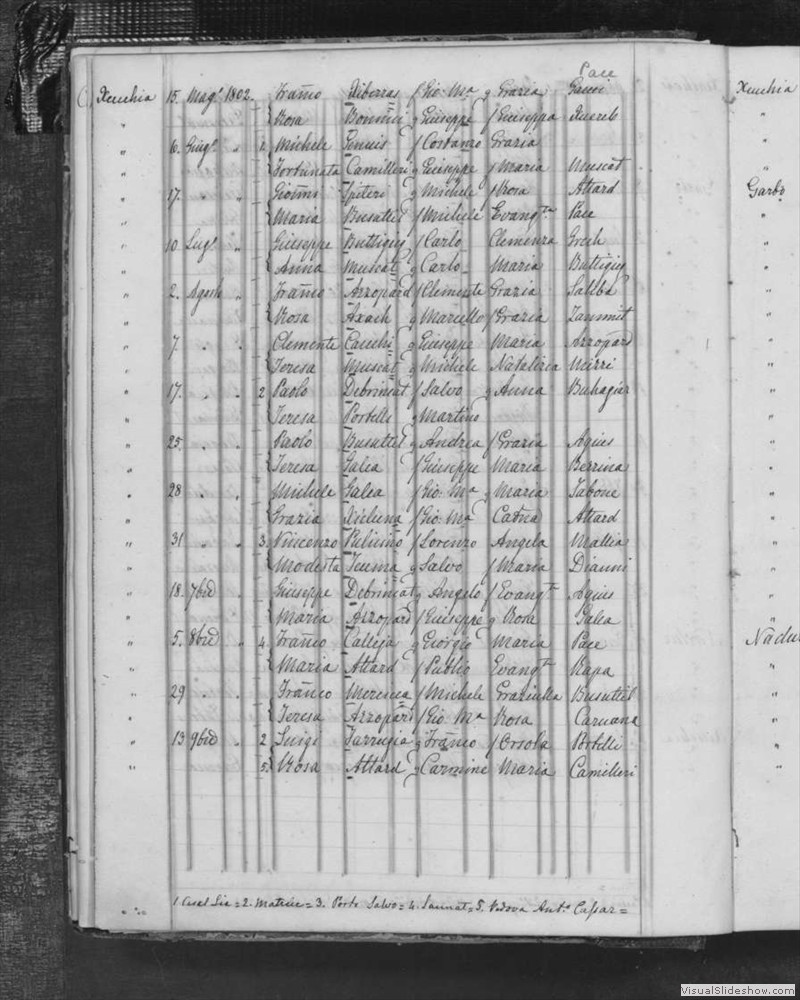 Pace
Xeuchia 15. Magº 1802. Franco Xiberras f Gio: Mª q Grazia Gauci Xeuchia
" Rosa Bonnici q Giuseppe f Giuseppa Xuereb "
" 6. Giugº " 2 Michele f Costanzo Grazia "
" Fortunata Camilleri q Giuseppe f Maria Muscat "
" 17. " " Gionni Spiteri q Michele f Rosa Attard Garbo
" Maria Busuttil f Michele Evangta Pace "
" 10 Lugº " Giuseppe Buttigieg f Carlo Clemenza Grech "
" Anna Muscat q Carlo Maria Buttigieg "
" 2. Agosto " Franco Azzopard f Clemente Grazia Saliba "
" Rosa Axiach q Marcello f Grazia Zammit "
" 7 " " Clemente Cauchi q Giuseppe Maria Azzopard "
" Teresa Muscat q Michele Natalizia "
" 17. " " 2 Paolo Debrincat f Salvo q Anna Buhagiar "
" Teresa Portelli q Martino "
" 25. " " Paolo Busuttil q Andrea f Grazia Agius "
" Teresa Galea f Giuseppe Maria "
" 28 " " Michele Galea f Gio: Mª q Maria Tabone "
" Grazia Xicluna f Gio: Mª Catna Attard "
" 31 " " 3. Vincenzo f Lorenzo Angela Mallia "
" Modesta Teuma q Salvo f Maria "
" 18. 7bre " Giuseppe Debrincat q Angelo f Evangta Agius "
" Maria Azzopard f Giuseppe q Rosa Galea "
" 5. 8bre " 4. Franco Calleja q Giorgio Maria Pace Nadur
" Maria Attard f Publio Evangta Rapa "
" 29 " " Franco Mercieca f Michele Graziulla Busuttil "
" Teresa Azzopard f Gio: Mª Rosa Caruana "
" 13 9bre " 2 Luigi Farrugia q Franco f Orsola Portelli "
" 5. Rosa Attard q Carmine Maria Camilleri "
1. Casal Lia = 2. Matrice = 3. Porto Salvo = 4. Sannat = 5. Vedova Antº Cassar =
VisualSlideshow.com